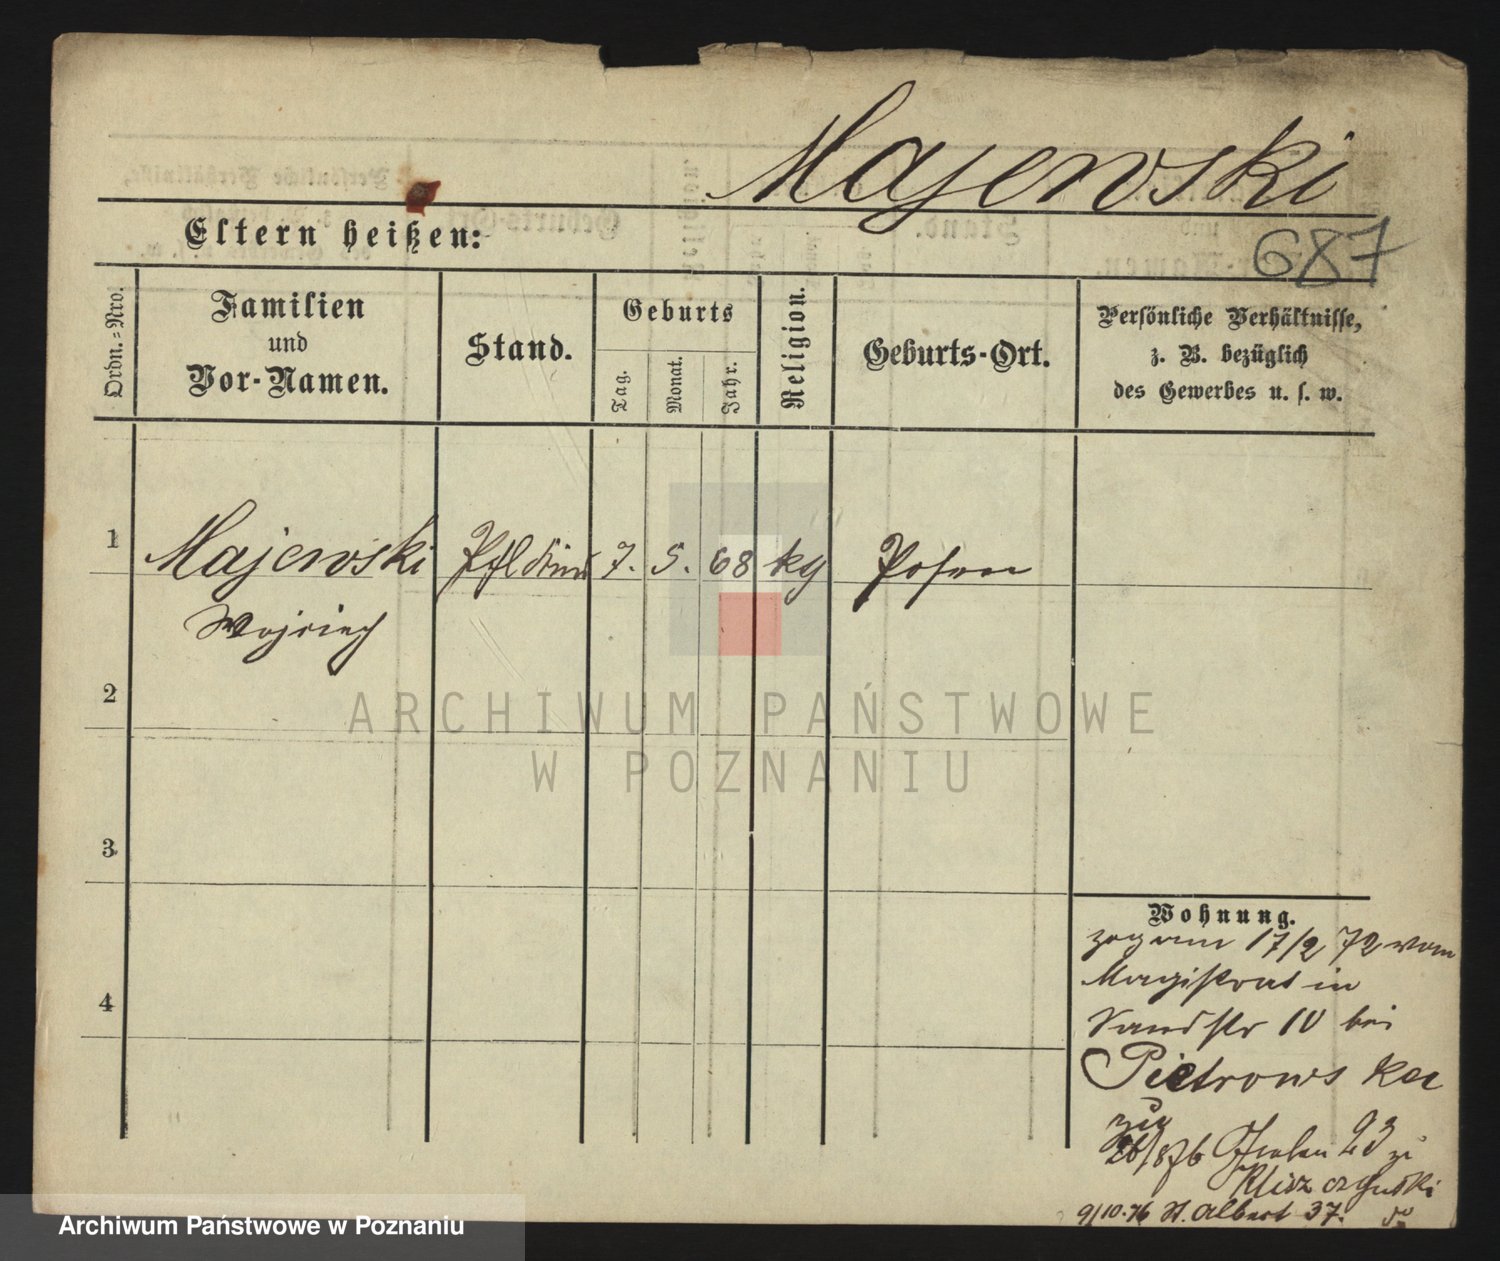 Majewski
Eltern heißen:
687
Ordn.-Nro.
Familien
und
Vor-Namen.
Stand.
Geburts
Tag.
Monat.
Jahr.
Religion.
Geburts-Ort.
Persönliche Verhältnisse,
z. B. bezüglich
des Gewerbes u. s. w.
1
Majewski
Wojciech
7. 5. 68
Posen
2
3
4
Wohnung.
zog am 17/2 72 vom
Magistrat in
Sandstr 10 bei
Pietrowska
26/8 76
23 zu
9/10.76 St. Albert 37. do
ARCHIWUM PAŃSTWOWE
W POZNANIU
Archiwum Państwowe w Poznaniu